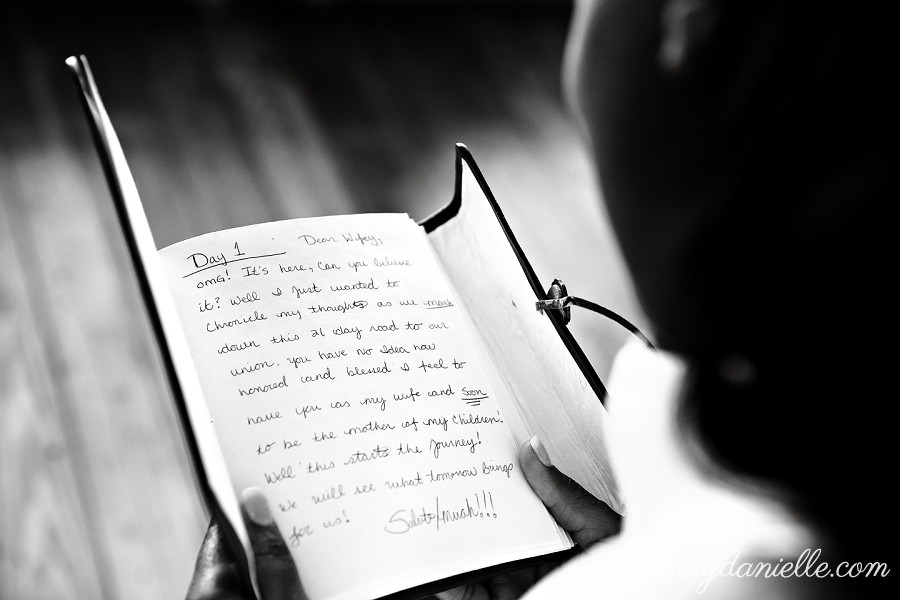 Day 1 Dear Wifey,
OMG! It's here, Can you believe
it? Well I just wanted to
chronicle my thoughts as we march
down this 21 day road to our
union. You have no Idea how
honored and blessed I feel to
have you as my wife and Soon
to be the mother of my children!
Well this starts the journey!
We will see what tomorrow brings
for us!
Salute/muah!!!
daydanielle.com